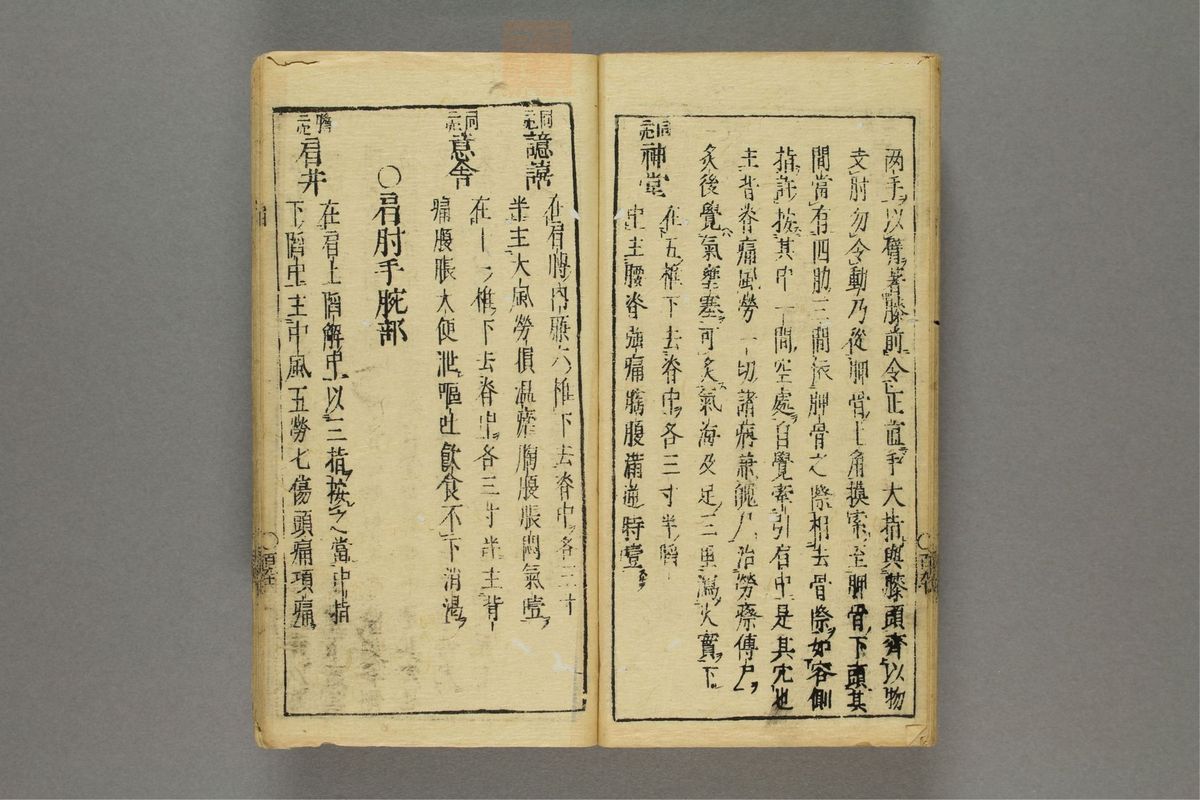 両手以臂著膝前令正直手大指與膝頭齊以物
支肘勿令動乃從胛骨上角摸索至胛骨下頭其
間當有四肋三間依胛骨之際相去骨際如容側
指許按其中一間空處自覺牽引肩中是其穴也
主背脊痛風勞一切諸病兼尸治勞瘵傳尸
灸後覺氣壅塞可灸氣海及足三里瀉火實下
同二元
神堂
在五椎下去脊中各三寸半陷
中主腰脊強痛胸腹滿逆時噎
同二元
譩譆
在肩膊內廉六椎下去脊中各三寸
半主大風勞損温瘧胸腹脹悶氣噎
同二元
意舍
在十一椎下去脊中各三寸半主背
痛腹脹大便泄嘔吐飲食不下消渴
○肩肘手腕部
膽二元
肩井
在肩上陷解中以三指按之當中指
下陷中主中風五勞七傷頭痛項痛